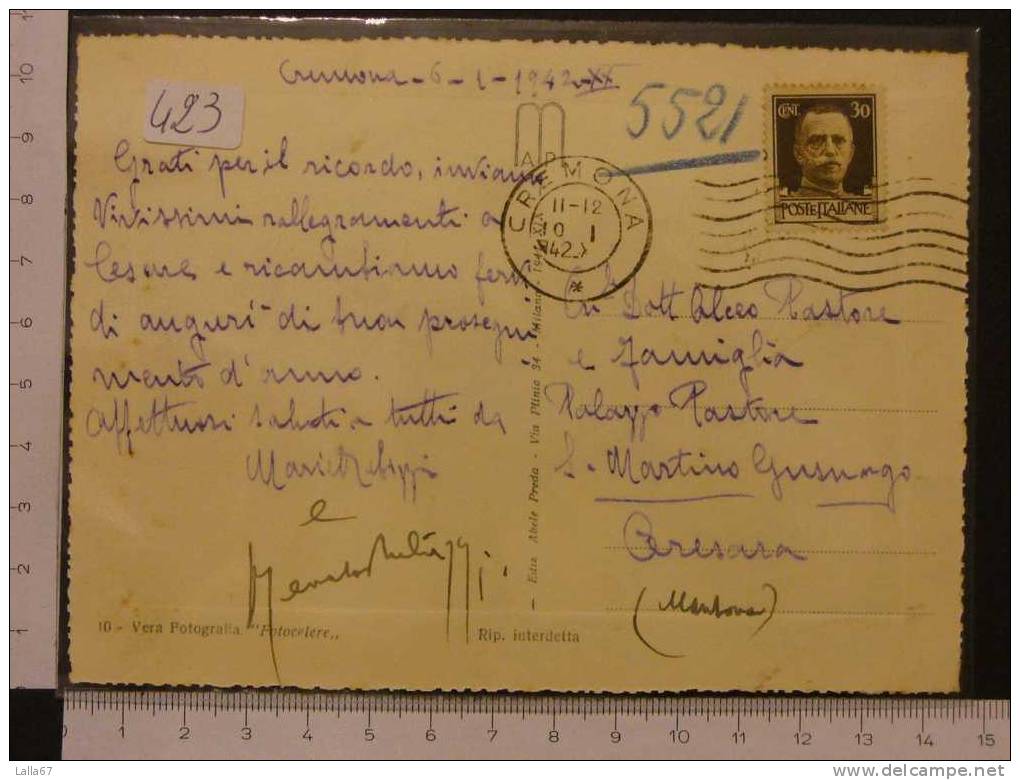 Cremona - 6 - 1 - 1942 - XX
423
5521
CENT. 30
POSTE ITALIANE
CREMONA
11-12
10 I
42 X
Grati per il ricordo, inviamo
Vivissimi rallegramenti a
Cesare e ricambiamo fervi
di auguri di buon prosegui
mento d'anno.
Affettuosi saluti a tutti da
e
Dott Alceo Pastore
e famiglia
Palazzo Pastore
S. Martino Gusnago
Ceresara
(Mantova)
- Ediz Abele Preda - Via Plinio 34 - Milano
10 - Vera Fotografia "Fotocelere„
Rip. interdetta
11
10
9
8
7
6
5
4
3
2
1
0 1 2 3 4 5 6 7 8 9 10 11 12 13 14 15
Lalla67
delcampe.net